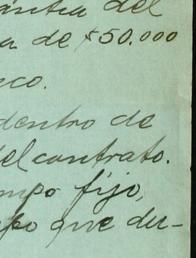 del
a de $50.000
co.
dentro de
del contrato.
mpo fijo,
po que du-